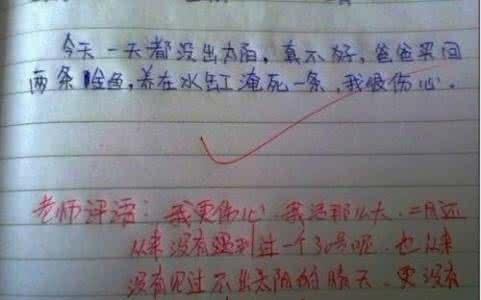 今天一天都没出太阳，真不好，爸爸买回
两条金鱼，养在水缸淹死一条，我很伤心。
老师评语：我更伤心，我活那么大，二月还
从来没有遇到过一个30号呢，也从来
没有见过不出太阳的晴天，更没有